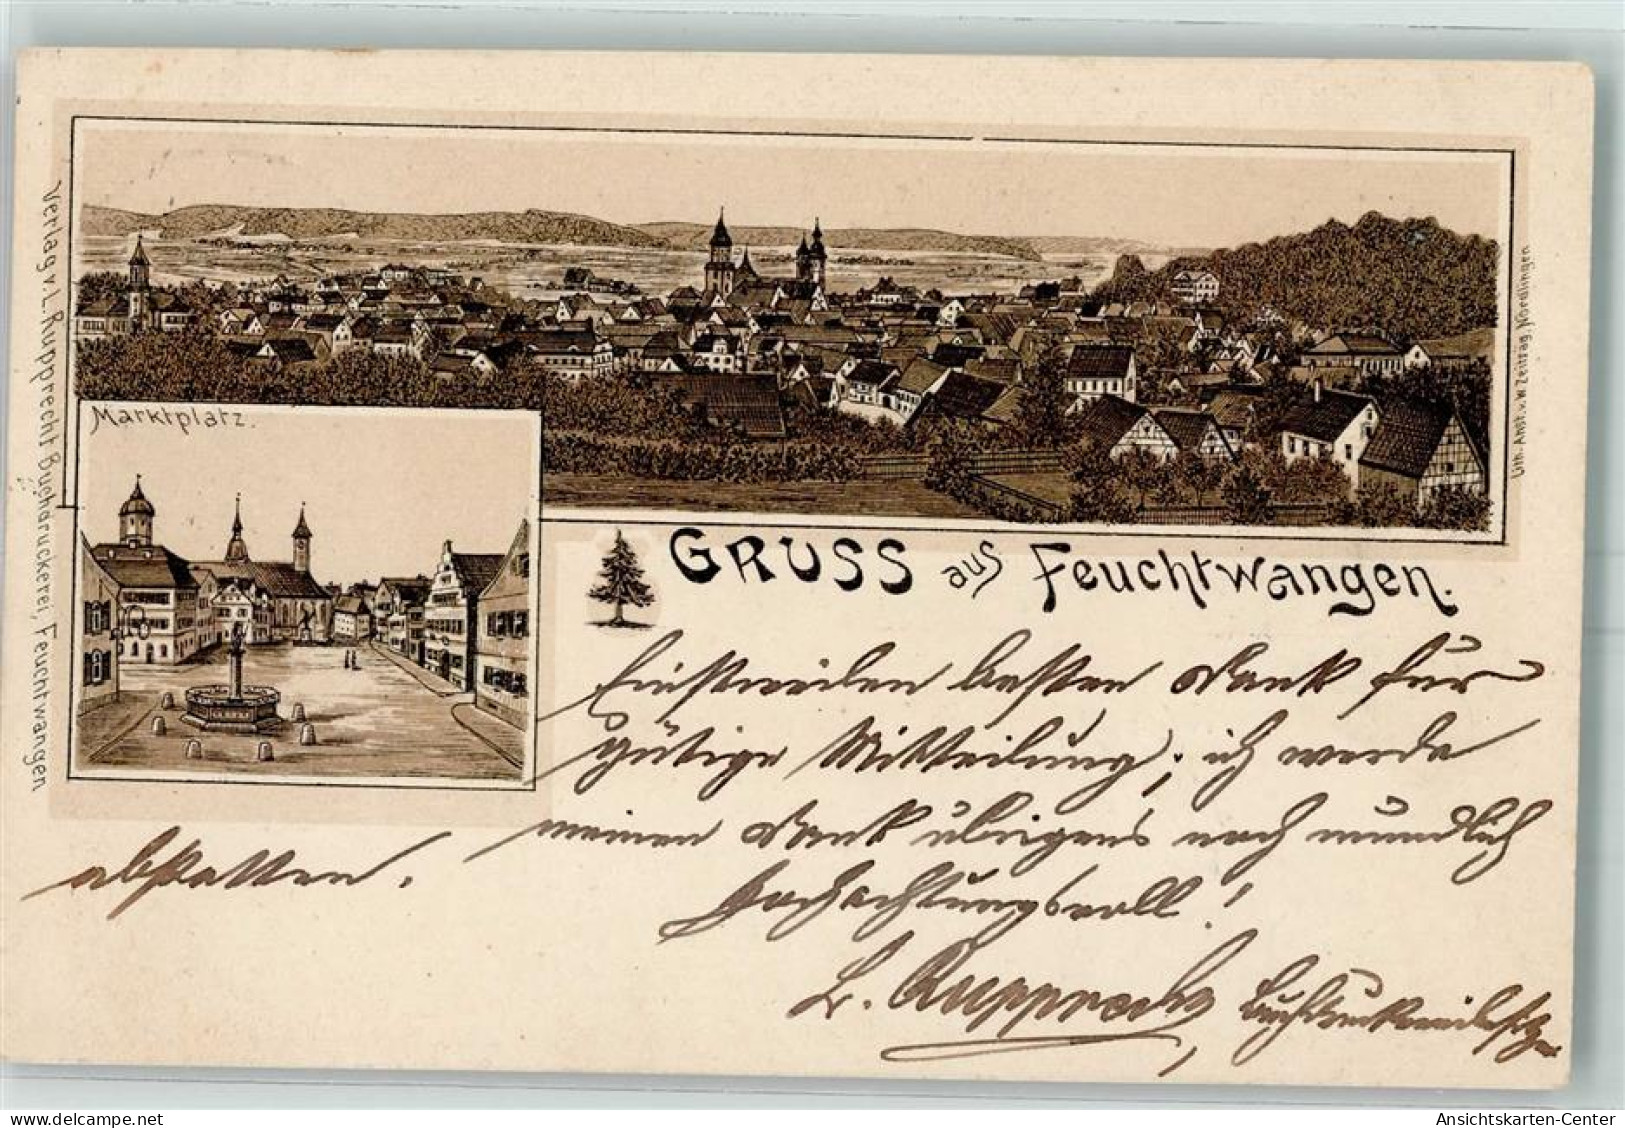 Marktplatz.
Verlag v. L. Rupprecht Buchdruckerei, Feuchtwangen
Lith. Anst. v. W. Zeitrag, Nördlingen
GRUSS aus Feuchtwangen.
Einstweilen besten Dank für
gütige Mitteilung; ich werde
meinen Dank übrigens noch mündlich
abstatten.
Hochachtungsvoll!
L. Rupprecht, Buchdruckereibesitz.
Ansichtskarten-Center